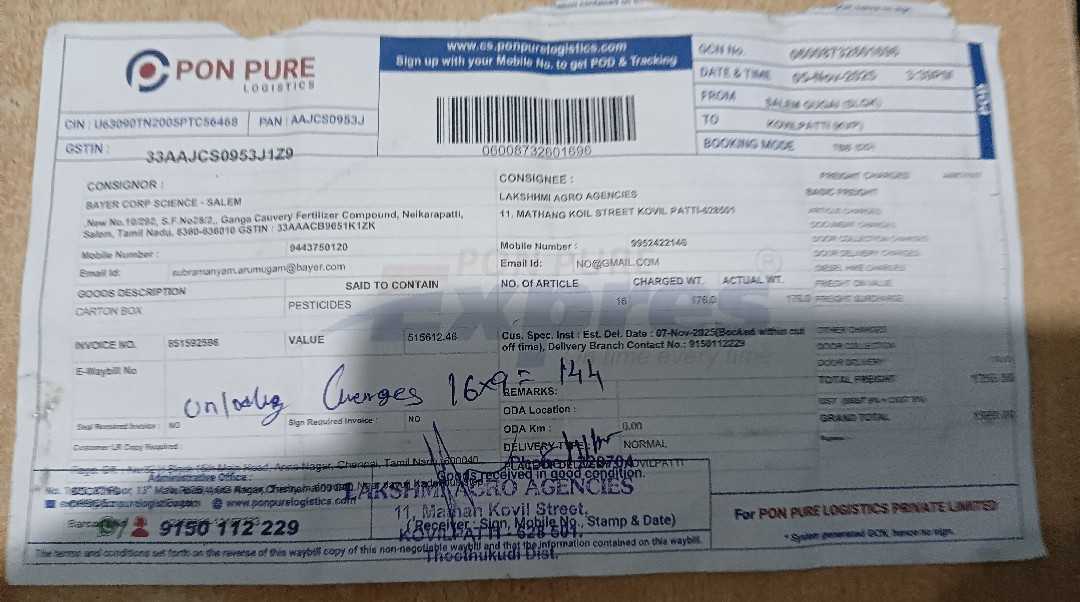 PON PURE
LOGISTICS
CIN : U63090TN2005PTC56468 PAN : AAJCS0953J
GSTIN : 33AAJCS0953J1Z9
www.cs.ponpurelogistics.com
Sign up with your Mobile No. to get POD & Tracking
06008732601696
GCN No. 06008732601696
DATE & TIME 05-Nov-2025
FROM SALEM
TO KOVILPATTI (KVP)
BOOKING MODE
CONSIGNOR :
BAYER CORP SCIENCE - SALEM
,New No.10/292, S.F.No28/2,, Ganga Cauvery Fertilizer Compound, Neikarapatti,
Salem, Tamil Nadu, 6360-636010 GSTIN : 33AAACB9651K1ZK
Mobile Number : 9443750120
Email Id: subramanyam.arumugam@bayer.com
CONSIGNEE :
LAKSHHMI AGRO AGENCIES
11, MATHANG KOIL STREET KOVIL PATTI-628501
Mobile Number : 9952422146
Email Id: NO@GMAIL.COM
FREIGHT CHARGES
BASIC FREIGHT
ARTICLE CHARGES
DOCUMENT CHARGES
DOOR COLLECTION CHARGES
DOOR DELIVERY CHARGES
DIESEL HIKE CHARGES
FREIGHT ON VALUE
FREIGHT SURCHARGE
OTHER CHARGES
DOOR COLLECTION
DOOR DELIVERY
TOTAL FREIGHT
GRAND TOTAL
PON PURE
Expres
GOODS DESCRIPTION SAID TO CONTAIN NO. Of ARTICLE CHARGED WT. ACTUAL WT.
CARTON BOX PESTICIDES 16 176.0 176.0
INVOICE NO. 851592586 VALUE 515612.46
Cus. Spec. Inst : Est. Del. Date : 07-Nov-2025(Booked within cut
off time), Delivery Branch Contact No.: 9150112229
E-Waybill No
Unloading Charges 16x9= 144
REMARKS:
ODA Location :
ODA Km : 0.00
DELIVERY TYPE : NORMAL
Seal Required Invoice : NO Sign Required Invoice : NO
Customer LR Copy Required :
Administrative Office :
www.ponpurelogistics.com
9150 112 229
Goods received in good condition.
LAKSHMI AGRO AGENCIES
11, Mathan Kovil Street,
(Receiver Sign, Mobile No., Stamp & Date)
KOVILPATTI - 628 501.
Thoothukudi Dist.
For PON PURE LOGISTICS PRIVATE LIMITED
* System generated GCN, hence no sign.
The terms and conditions set forth on the reverse of this waybill copy of this non-negotiable waybill and that the information contained on this waybill.